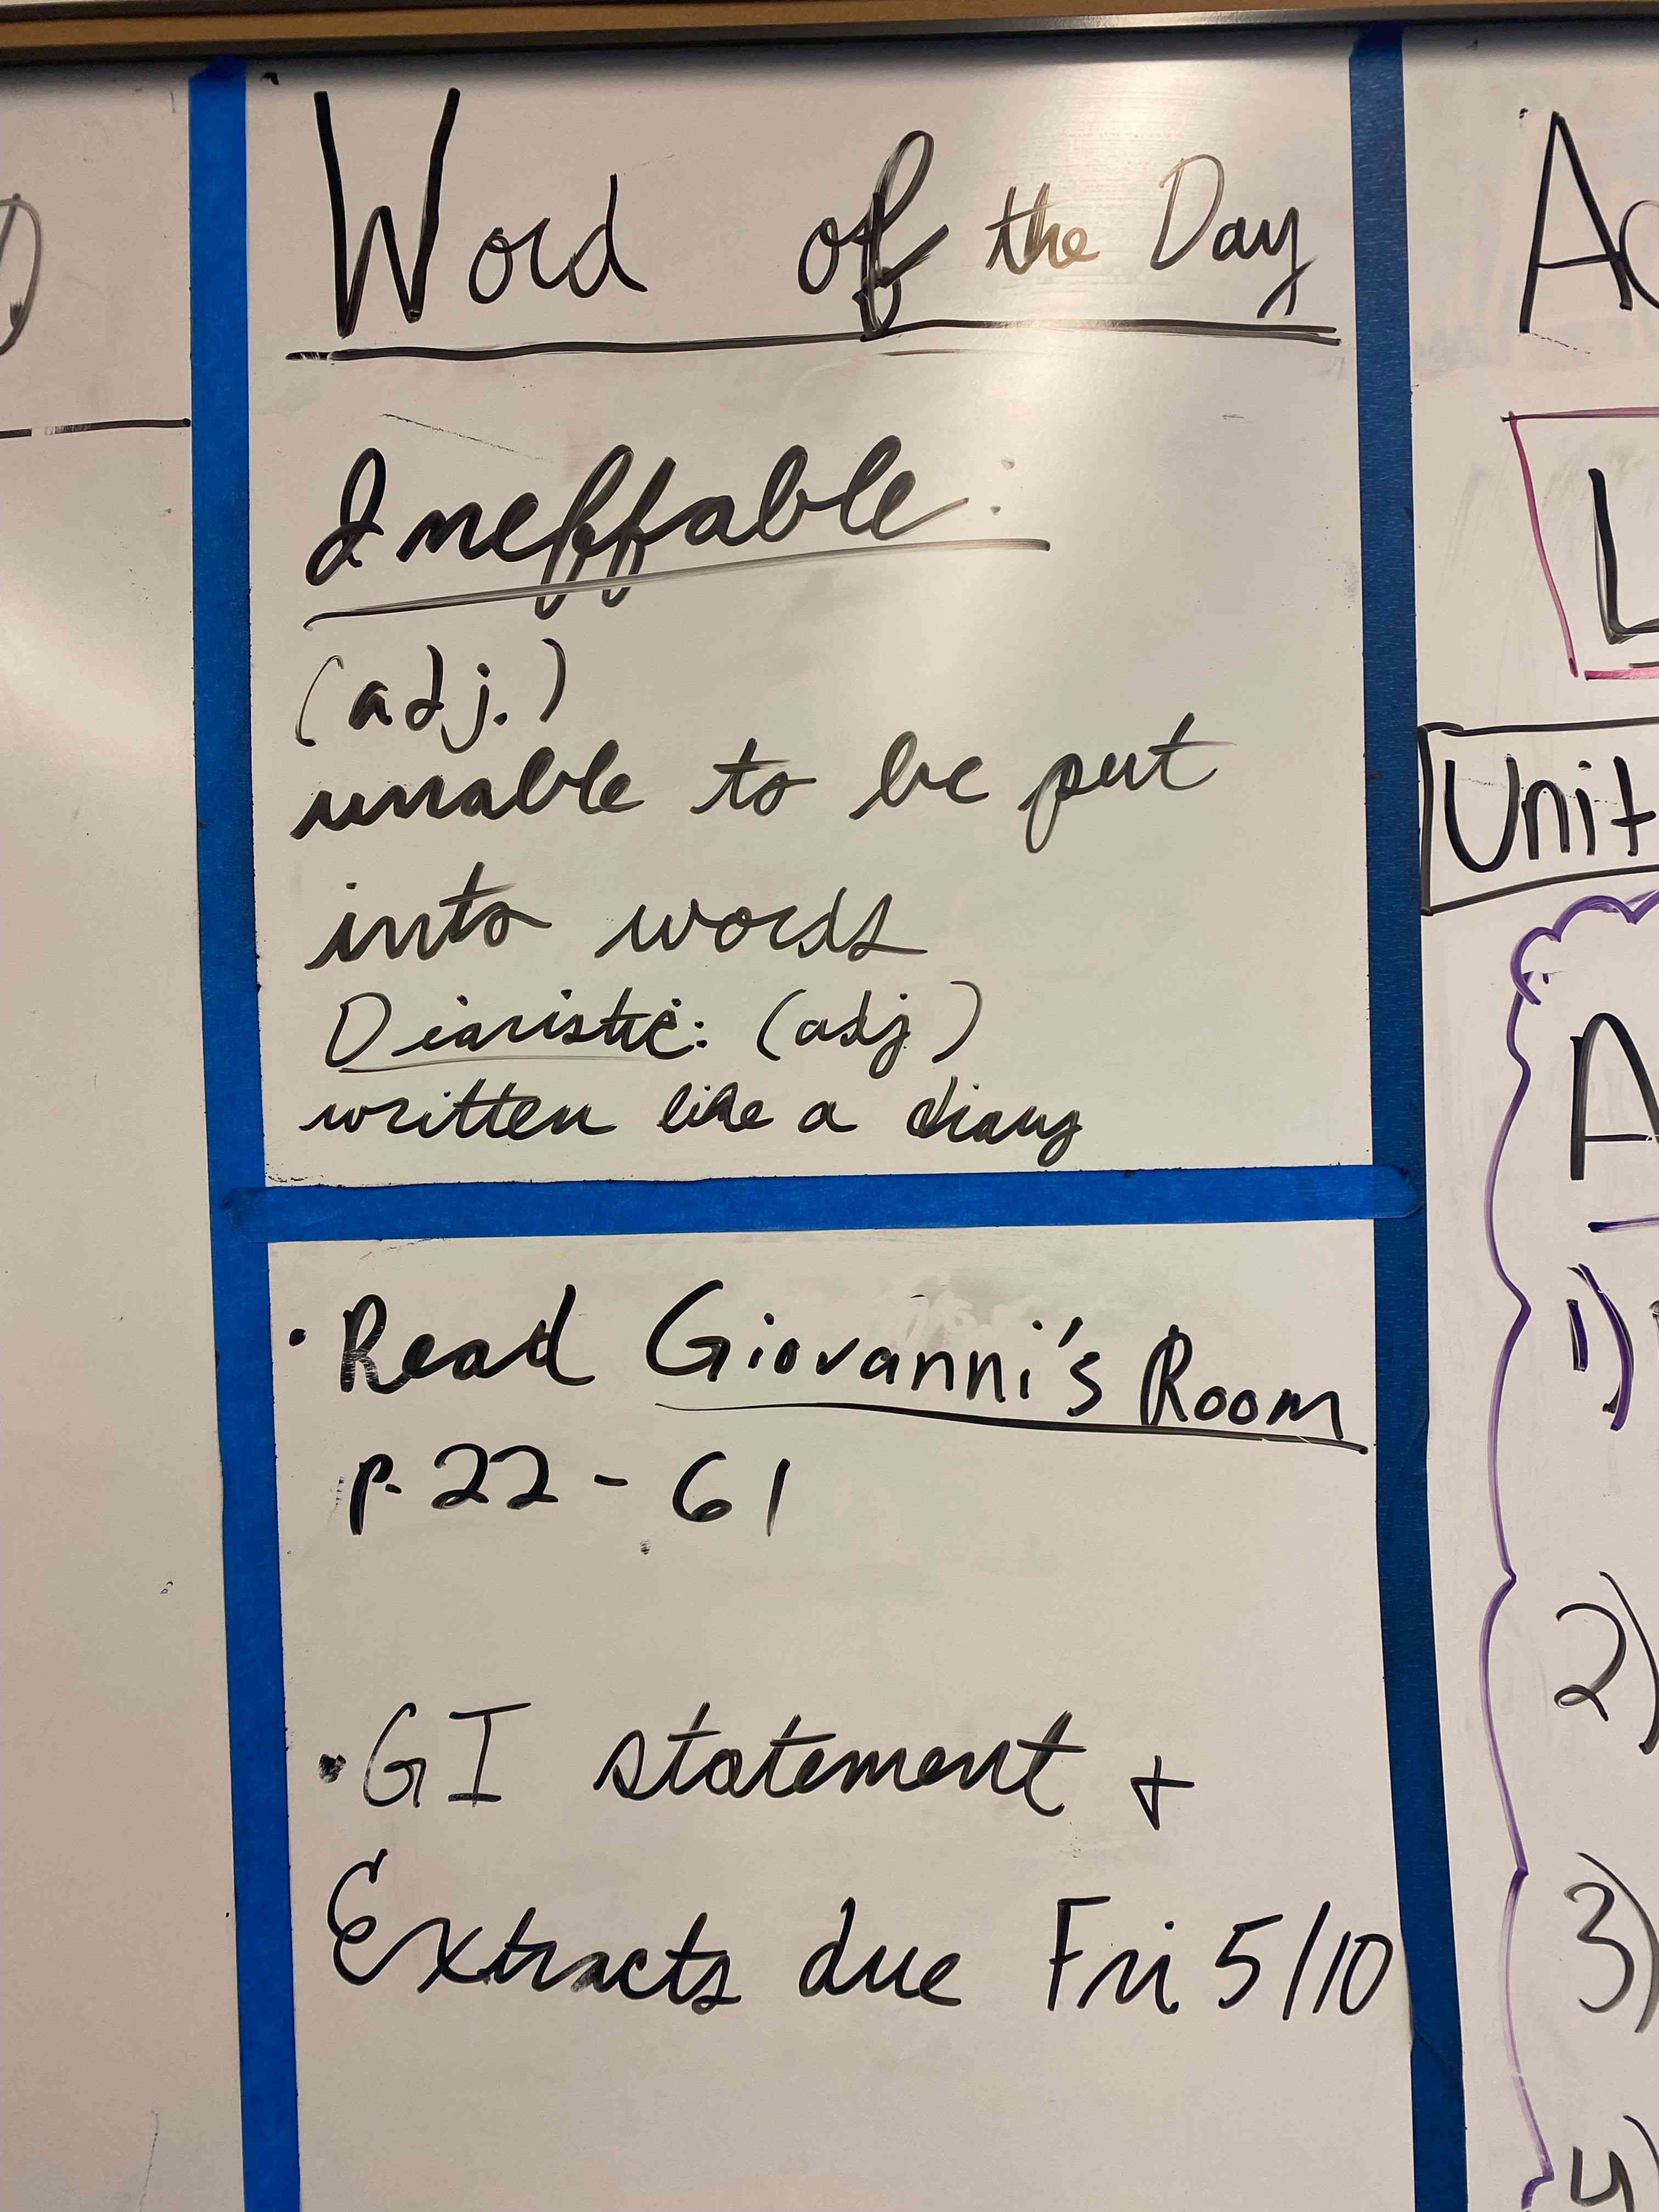 Word of the Day
Ineffable:
(adj.)
unable to be put
into words
Diaristic: (adj)
written like a diary
• Read Giovanni's Room
p. 22 - 61
• GI statement +
Extracts due Fri 5/10
Unit
A
1)
2)
3)
4)